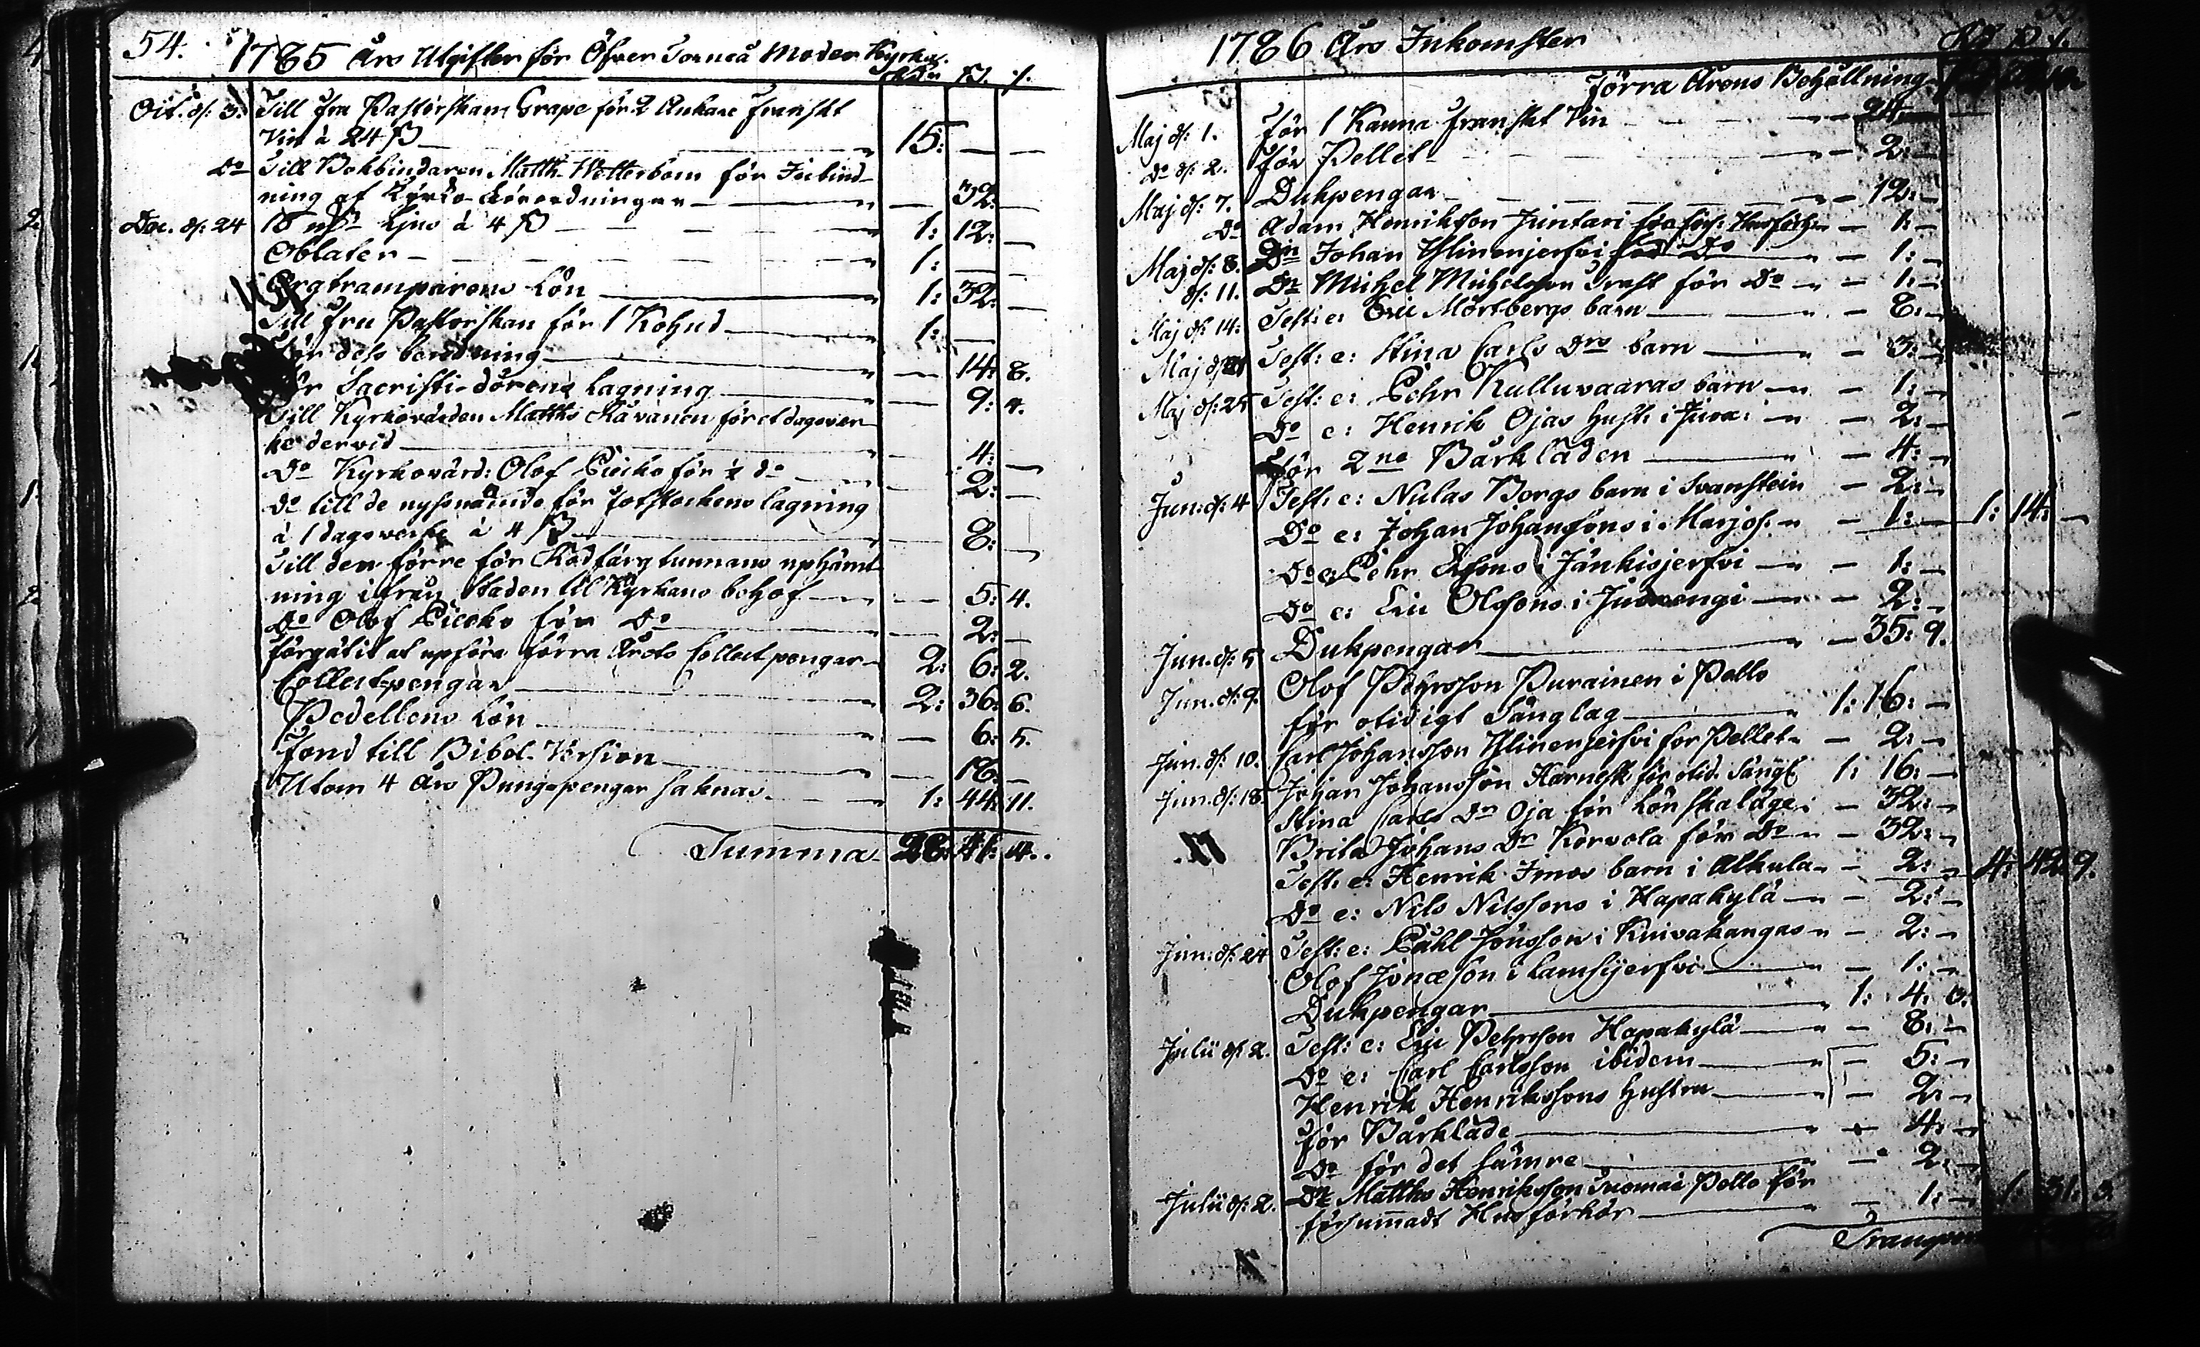 54. 1785 Års Utgifter för Öfver Torneå Moder Kyrka.
Rdr ß. /.
Oct. d: 3. Till fru Pastorskan Grape för 2 Ankare franskt
Vin à 24 ß 15: — —
Do Till Bokbindaren Matth. Wetterbom för Inbind-
ning af Kyrko-förordningar — 32: —
Dec. d: 24 15 ljus à 4 ß 1: 12: —
Oblater 1: — —
Orgtramparens Lön 1: 32: —
Till fru Pastorskan för 1 Kohud 1: —
dess beredning — 14: 8.
Sacristi-dörens lagning — 9: 4.
Till Kyrkovärden Matths Kavanen för et dagsver-
ke dervid — 4: —
Do Kyrkovärd: Olof för ½ do — 2: —
Do till de nyssnämnde för fotstockens lagning
à 1 dagsverke à 4 ß — 8: —
Till den förre för Rödfärg tunnans uphämt-
ning ifrån Staden til Kyrkans behof — 5: 4.
Do Olof för Do — 2: —
förgätit at upföra förra Årets Collectpengar 2: 6: 2.
Collectpengar 2: 36: 6.
Pedellens Lön — 6: 5.
fond till Bibel-Version — 16: —
Utom 4 års Pungpengar saknas 1: 44: 11.
Summa 28: 41: 4.
1786 Års Inkomster
Rd ß /.
Förra Årens Behållning
Maj d: 1. för 1 Kanna franskt Vin — 24: —
Do d: 2. för Pellet — 2: —
Maj d: 7. Dukpengar — 12: —
Do Adam Henriksson Juntari för förs: Husförh: — 1: —
Maj d: 8. Dn Johan Ylinenjerfvi för Do — 1: —
d: 11. Dn Michel Michelsson Graft för Do — 1: —
Maj d: 14: Test: e: Eric Mörtbergs barn — 8: —
Maj d: 21 Test: e: Stina Carls Drs barn — 3: —
Maj d: 25 Test: e: Pehr Kulluvaaras barn — 1: —
Do e: Henrik Ojas hust: i Juva: — 2: —
för 2ne Bårkläden — 4: —
Jun: d: 4 Test: e: Niclas Borgs barn i Svanstein — 2: —
Do e: Johan Johanssons i Marjos: — 1: — 1: 14: —
Do e: Pehr i Jänkisjerfvi — 1: —
Do e: Eric Olssons i Juoxengi — 2: —
Jun. d: 5 Dukpengar — 35: 9.
Jun. d: 9. Olof Pehrsson Purainen i Pello
för otidigt Sänglag 1: 16: —
Jun. d: 10. Carl Johansson Ylinenjerfvi för Pellet — 2: —
Jun. d: 18. Johan Johansson Harnesk för otid. Sängl. 1: 16: —
Stina Carls Dr Oja för Lönskaläge: — 32: —
Brita Johans Dr Korvola för Do — 32: —
Test: e: Henrik Imos barn i Alkula — 2: — 4: 42: 9.
Do e: Nils Nilssons i Hapakylä — 2: —
Jun: d: 24 Test: e: Påhl Jönsson i Kuivakangas — 2: —
Olof Jonæson i Lamsijerfvi — 1: —
Dukpengar 1: 4: 3.
Julii d: 2. Test: e: Eric Pehrsson Hapakylä — 8: —
Do e: Carl Carlsson ibidem — 5: —
Henrik Henrikssons hustru — 2: —
för Bårkläde — 4: —
Do för det sämre — 2: —
Julii d: 2. Dr Matths Henriksson Tuomas Pello för
försummadt Husförhör — 1: — 1: 31: 3.